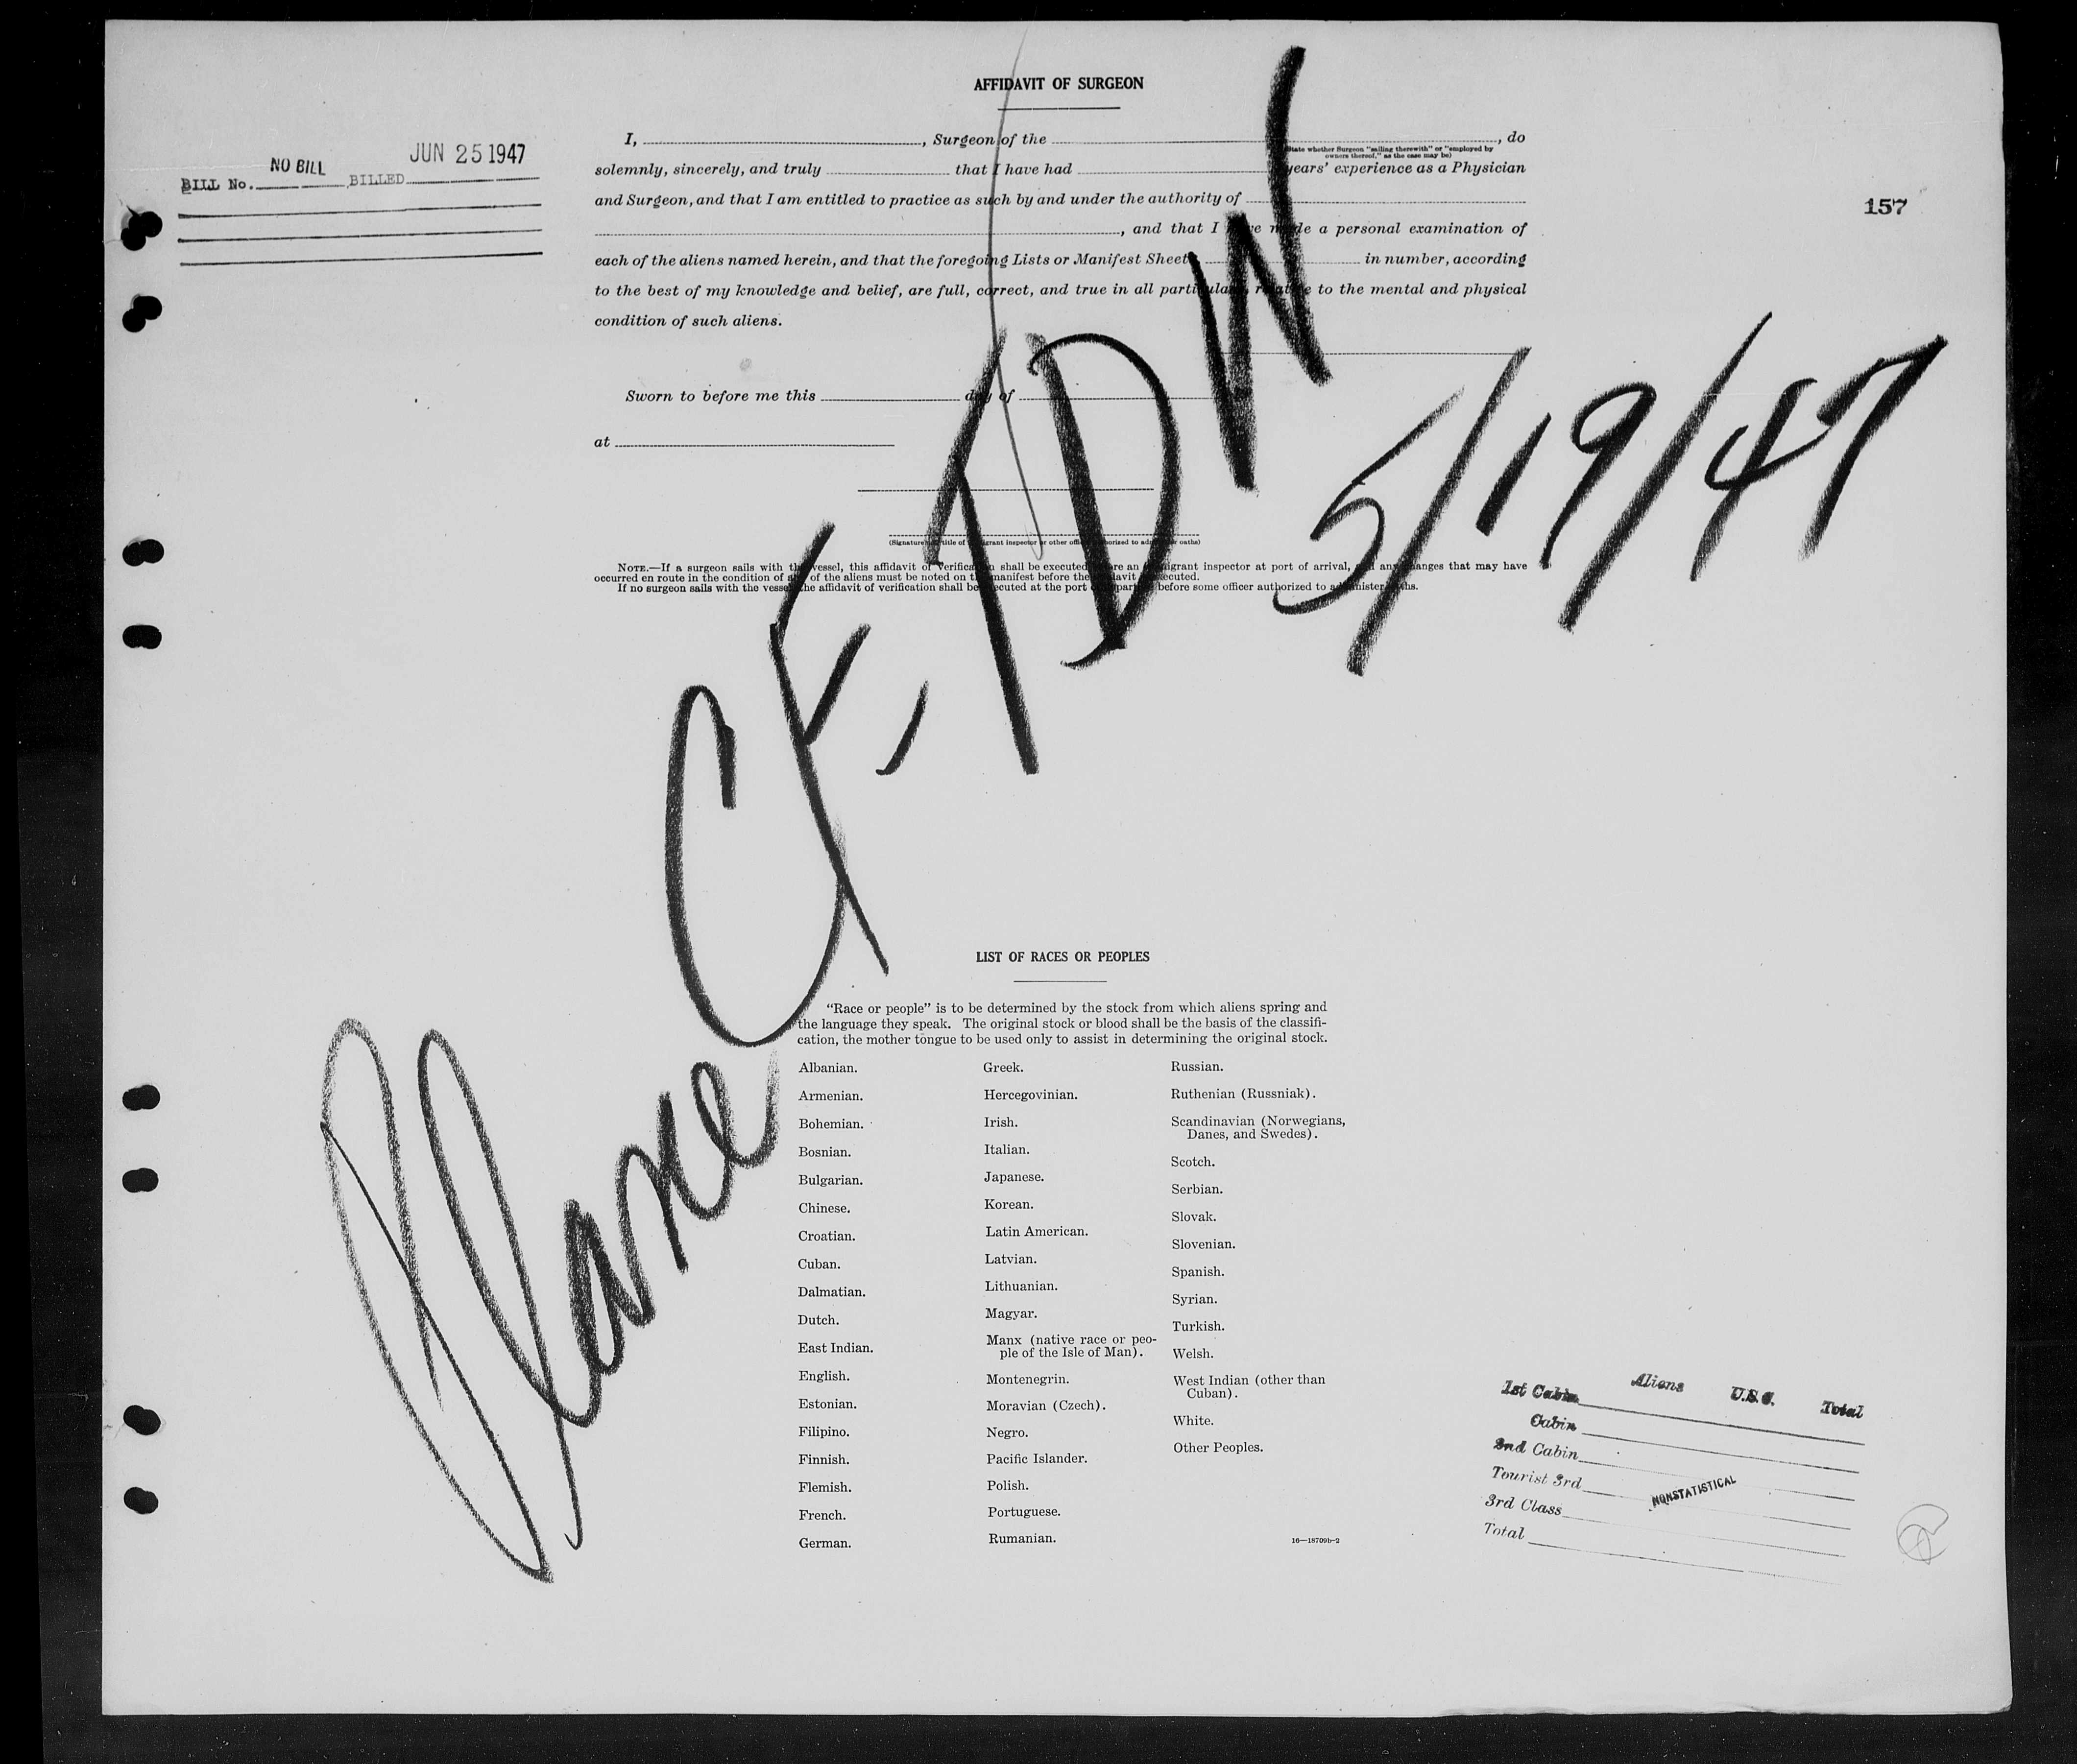 AFFIDAVIT OF SURGEON
I, , Surgeon of the , do
(State whether Surgeon "sailing therewith" or "employed by
owners thereof," as the case may be)
solemnly, sincerely, and truly that I have had years' experience as a Physician
and Surgeon, and that I am entitled to practice as such by and under the authority of
, and that I have made a personal examination of
each of the aliens named herein, and that the foregoing Lists or Manifest Sheets, in number, according
to the best of my knowledge and belief, are full, correct, and true in all particulars relative to the mental and physical
condition of such aliens.
Sworn to before me this day of
at
(Signature and title of immigrant inspector or other officer authorized to administer oaths)
NOTE.—If a surgeon sails with the vessel, this affidavit of verification shall be executed before an immigrant inspector at port of arrival, and any changes that may have
occurred en route in the condition of any of the aliens must be noted on the manifest before the affidavit is executed.
If no surgeon sails with the vessel, the affidavit of verification shall be executed at the port of departure before some officer authorized to administer oaths.
NO BILL JUN 25 1947
BILL No. BILLED
157
Plane CF-TDW
5/19/47
LIST OF RACES OR PEOPLES
"Race or people" is to be determined by the stock from which aliens spring and
the language they speak. The original stock or blood shall be the basis of the classifi-
cation, the mother tongue to be used only to assist in determining the original stock.
Albanian.
Armenian.
Bohemian.
Bosnian.
Bulgarian.
Chinese.
Croatian.
Cuban.
Dalmatian.
Dutch.
East Indian.
English.
Estonian.
Filipino.
Finnish.
Flemish.
French.
German.
Greek.
Hercegovinian.
Irish.
Italian.
Japanese.
Korean.
Latin American.
Latvian.
Lithuanian.
Magyar.
Manx (native race or peo-
ple of the Isle of Man).
Montenegrin.
Moravian (Czech).
Negro.
Pacific Islander.
Polish.
Portuguese.
Rumanian.
Russian.
Ruthenian (Russniak).
Scandinavian (Norwegians,
Danes, and Swedes).
Scotch.
Serbian.
Slovak.
Slovenian.
Spanish.
Syrian.
Turkish.
Welsh.
West Indian (other than
Cuban).
White.
Other Peoples.
16—18709b-2
Aliens U.S.C. Total
1st Cabin
Cabin
2nd Cabin
Tourist 3rd
3rd Class
Total
NONSTATISTICAL